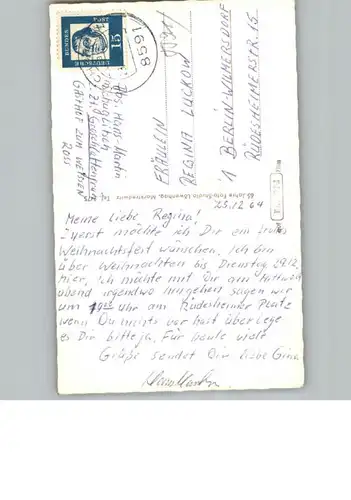 DEUTSCHE
BUNDES
POST
15
8591
Abs. Hans-Martin
8591
GASTHOF ZUM WEISSEN
ROSS
FRÄULEIN
REGINA LUCKOW
1 BERLIN-WILMERSDORF
RÜDESHEIMERSTR 15
65 Jahre Foto-Studio Löwenhag, Marktredwitz
25.12.64
Meine liebe Regina!
Zuerst möchte ich Dir ein frohes
Weihnachtsfest wünschen. Ich bin
über Weihnachten bis Dienstag 29.12.
hier, ich möchte mit Dir am Mittwoch
abend irgendwo ausgehen sagen wir
um Uhr am Rüdesheimer Platz
wenn Du nichts vor hast überlege
es Dir bitte ja. Für heute viele
Grüße sendet Dir liebe Gina